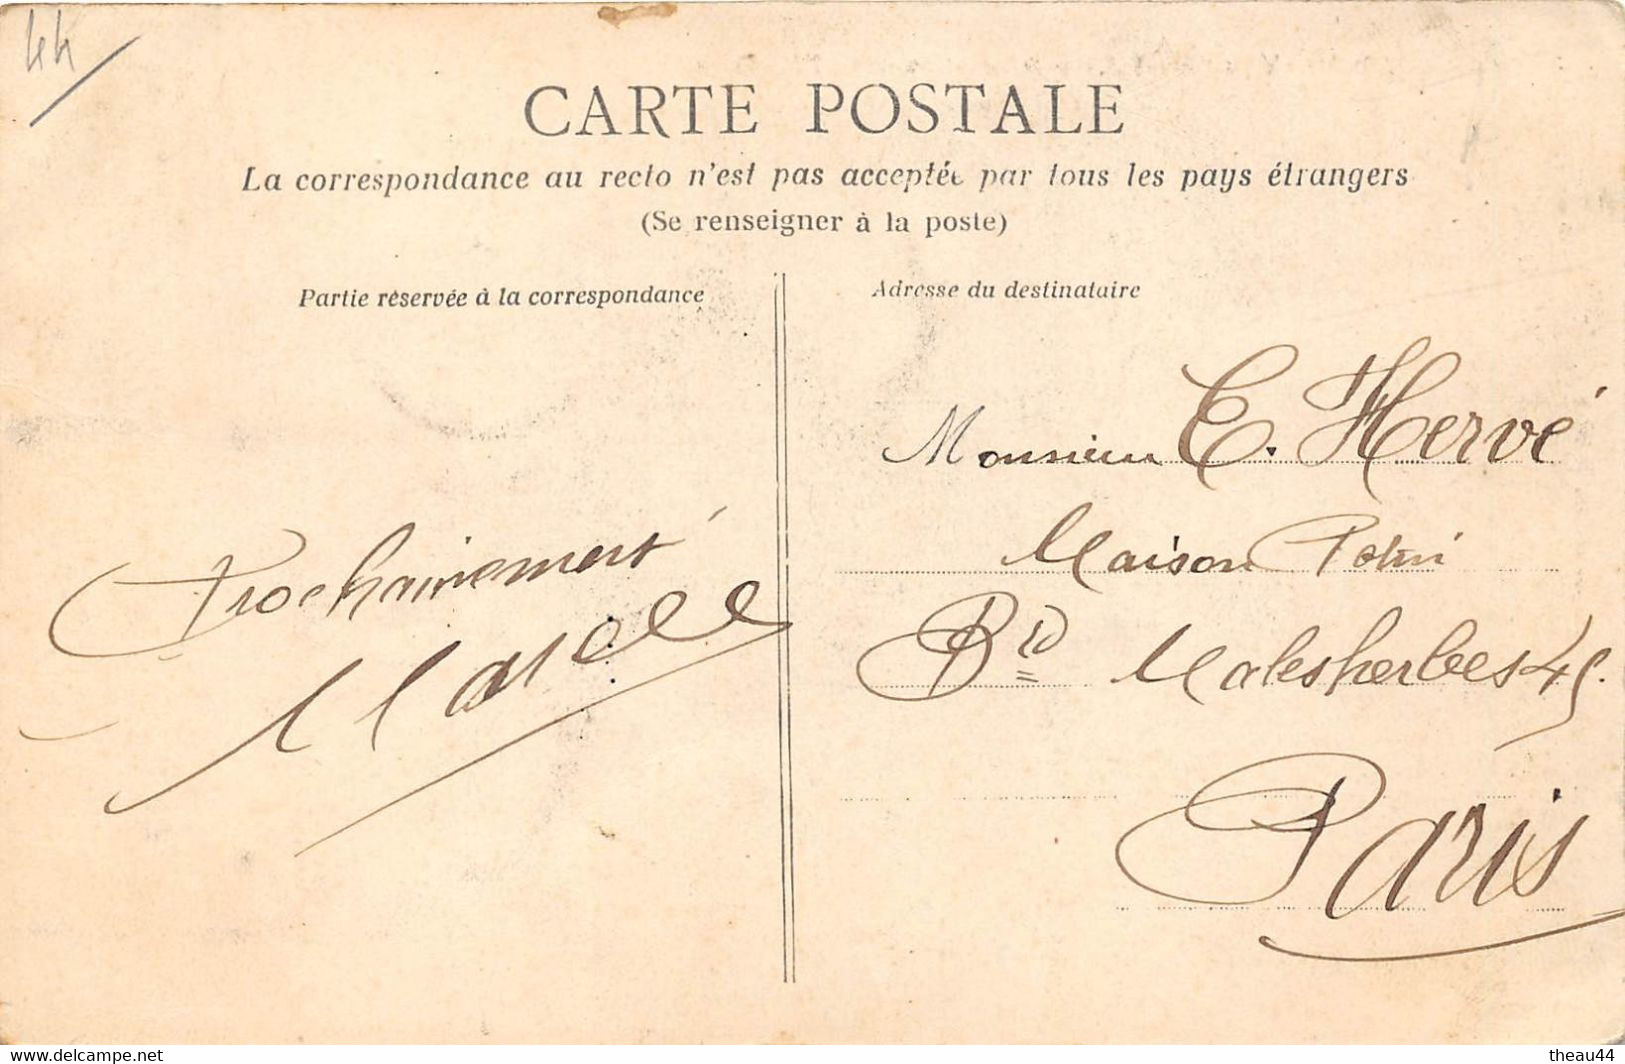 44
CARTE POSTALE
La correspondance au recto n'est pas acceptée par tous les pays étrangers
(Se renseigner à la poste)
Partie réservée à la correspondance
Adresse du destinataire
Prochainement
Marcel
Monsieur E. Hervé
Maison Potin
Bd Malesherbes 45.
Paris
www.delcampe.net
theau44